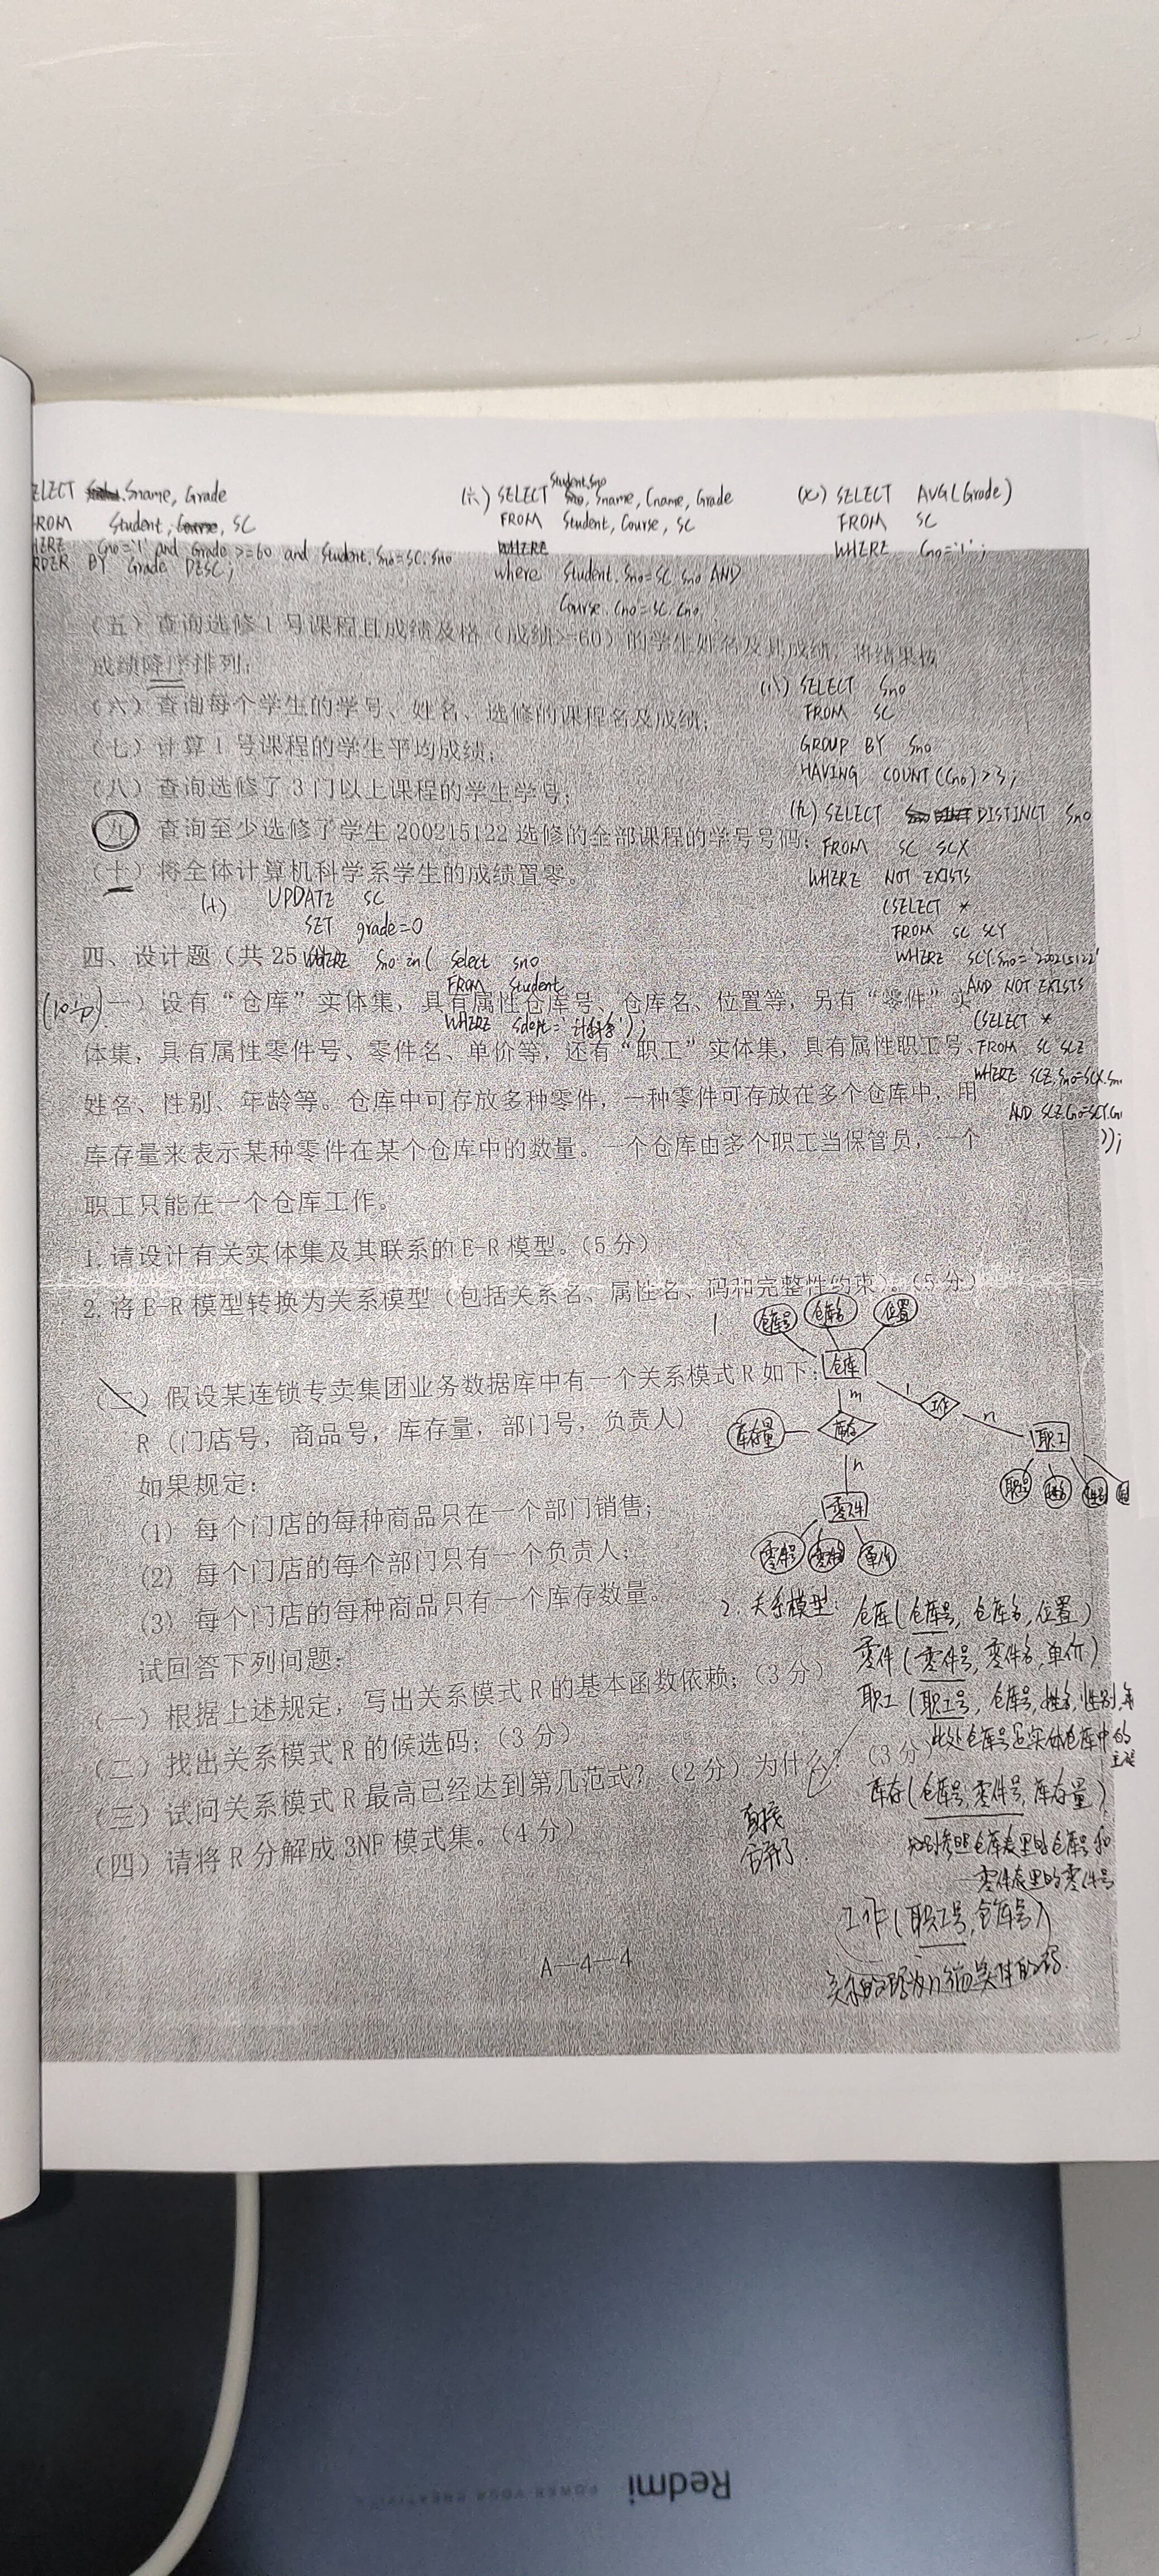 ELECT Sname, Grade
FROM Student, Course, SC
Cno='1' and Grade >=60 and Student.Sno=SC.Sno
RDER BY Grade DESC;
(六) SELECT Student.Sno, Sname, Cname, Grade
FROM Student, Course, SC
WHERE
where Student.Sno=SC.Sno AND
Course.Cno=SC.Cno
(七) SELECT AVG(Grade)
FROM SC
WHERE Cno='1';
(五) 查询选修1号课程且成绩及格（成绩>=60）的学生姓名及其成绩，将结果按
成绩降序排列；
(六) 查询每个学生的学号、姓名、选修的课程名及成绩；
(七) 计算1号课程的学生平均成绩；
(八) 查询选修了3门以上课程的学生学号；
九 查询至少选修了学生200215122选修的全部课程的学号号码；
(十) 将全体计算机科学系学生的成绩置零。
(八) SELECT Sno
FROM SC
GROUP BY Sno
HAVING COUNT(Cno)>3;
(九) SELECT DISTINCT Sno
FROM SC SCX
WHERE NOT EXISTS
(SELECT *
FROM SC SCY
WHERE SCY.Sno='200215122'
AND NOT EXISTS
(SELECT *
FROM SC SCZ
WHERE SCZ.Sno=SCX.Sn
AND SCZ.Cno=SCY.Cn
));
(十) UPDATE SC
SET grade=0
WHERE Sno in( select sno
FROM Student
WHERE sdept='计科系');
四、设计题（共25
(10分)
一）设有“仓库”实体集，具有属性仓库号、仓库名、位置等，另有“零件”实
体集，具有属性零件号、零件名、单价等，还有“职工”实体集，具有属性职工号、
姓名、性别、年龄等。仓库中可存放多种零件，一种零件可存放在多个仓库中，用
库存量来表示某种零件在某个仓库中的数量。一个仓库由多个职工当保管员，一个
职工只能在一个仓库工作。
1.请设计有关实体集及其联系的E-R模型。（5分）
2.将E-R模型转换为关系模型（包括关系名、属性名、码和完整性约束）。（5分）
1
仓库号 仓库名 位置
仓库
m 1 工作 n
库存量 库存 职工
n
职工号 姓名 性别
零件
零件号 零件名 单价
(二) 假设某连锁专卖集团业务数据库中有一个关系模式R如下：
R（门店号，商品号，库存量，部门号，负责人）
如果规定：
(1) 每个门店的每种商品只在一个部门销售；
(2) 每个门店的每个部门只有一个负责人；
(3) 每个门店的每种商品只有一个库存数量。
试回答下列问题：
(一) 根据上述规定，写出关系模式R的基本函数依赖；（3分）
(二) 找出关系模式R的候选码；（3分）
(三) 试问关系模式R最高已经达到第几范式？（2分）为什么？（3分）
(四) 请将R分解成3NF模式集。（4分）
2. 关系模型: 仓库(仓库号, 仓库名, 位置)
零件(零件号, 零件名, 单价)
职工(职工号, 仓库号, 姓名, 性别, 年
此处仓库号是实体仓库中的
主键
库存(仓库号, 零件号, 库存量)
分别参照仓库表里的仓库号和
零件表里的零件号
直接
合并了
工作(职工号, 仓库号)
关系的码为n端实体的码.
A—4—4
Redmi